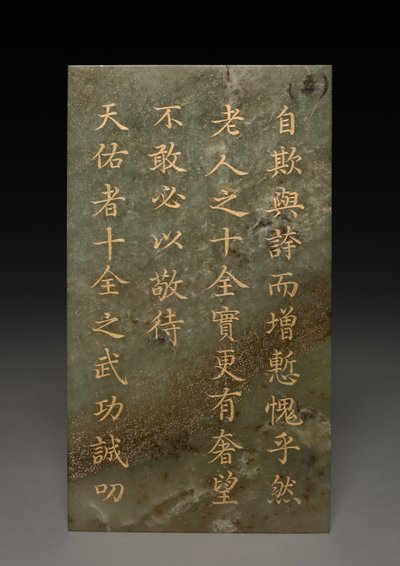 自欺與誇而增慙愧乎然
老人之十全實更有奢望
不敢必以敬待
天佑者十全之武功誠叨
(五)